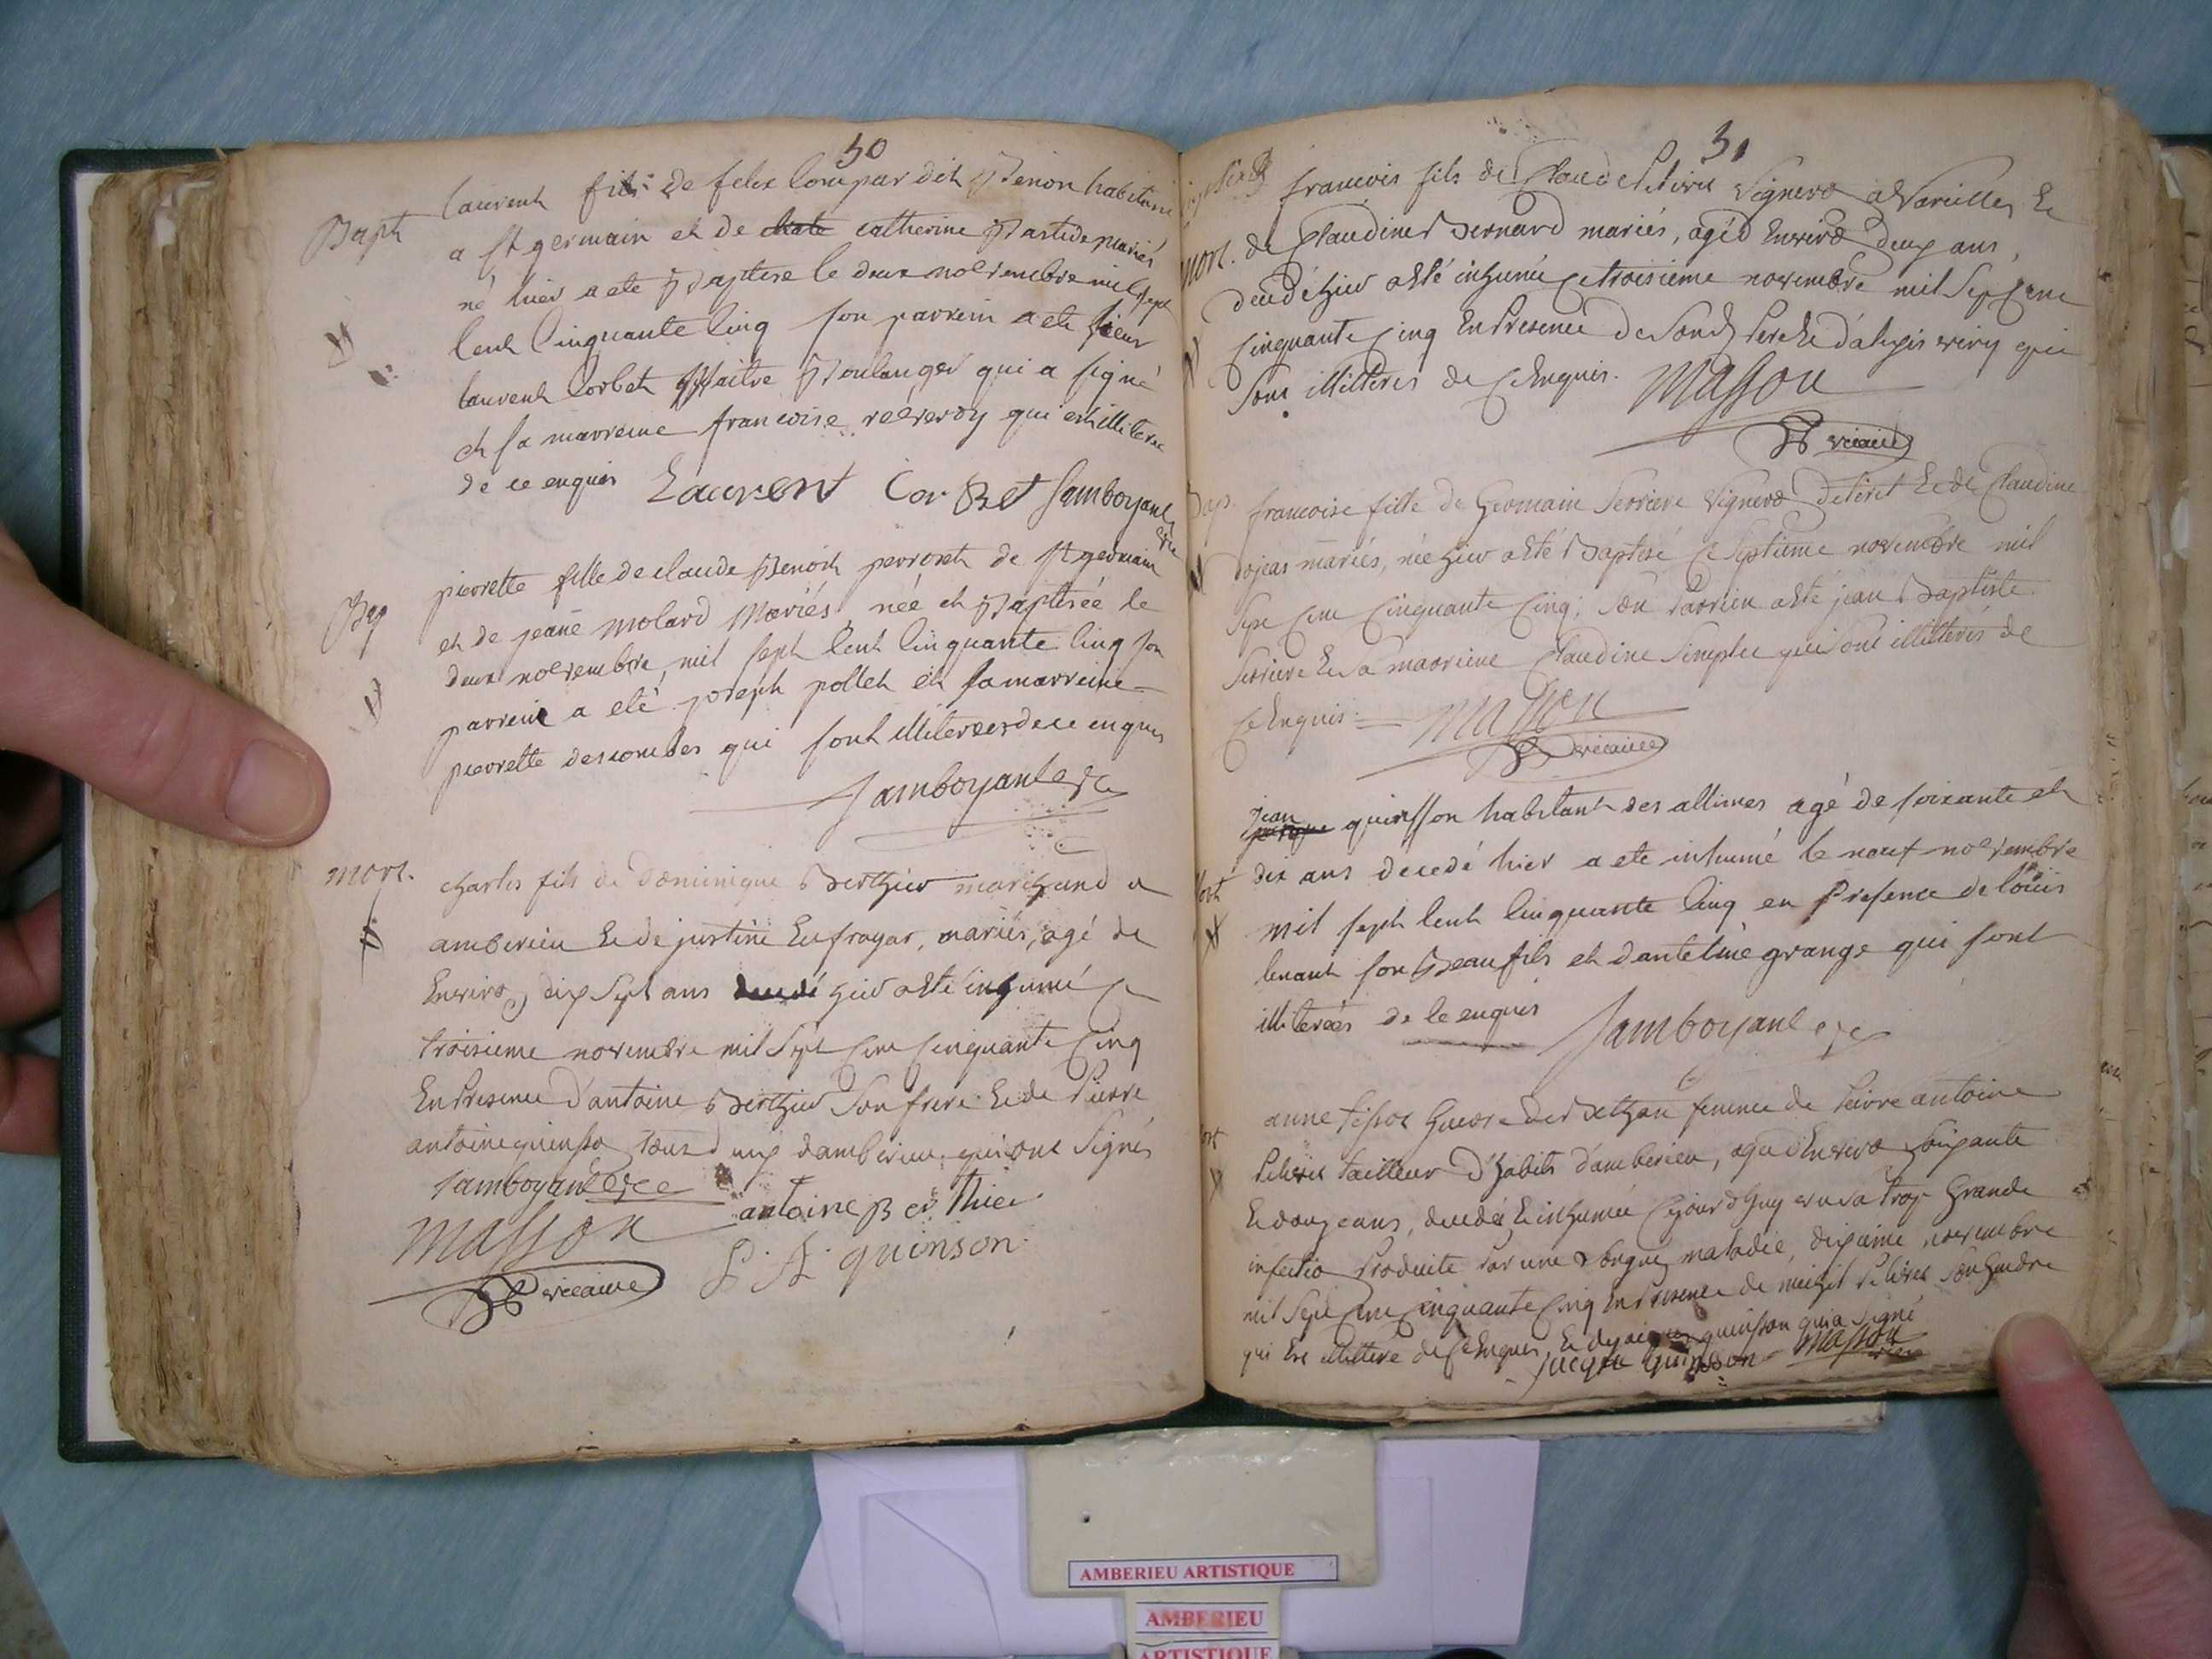 50
Bapt
laurent fils de felix compar dit Benon habitant
a st germain et de catherine Bastide mariés
né hier a ete Baptise le deux novembre mil sept
cent cinquante cinq son parrein a ete sieur
laurent Corbet Maitre Boulanger qui a signé
et sa marreine francoise reverdy qui est illiteree
de ce enquis Laurent Cor Bet Jamboyant
Bap
pierrette fille de claude Benoit perrozet de st germain
et de jeane molard Mariés née et Baptisée le
deux novembre mil sept cent cinquante cinq son
parrein a eté joseph pollet et sa marreine
pierrette descombes qui sont illiterees de ce enquis
Jamboyant
mort.
charles fils de dominique Berthier marchand a
amberieu et de justine mariés, agé de
Environ dix sept ans hier a esté inhumé ce
troisieme novembre mil sept cent cinquante cinq
En Presence d'antoine Berthier son frere et de Pierre
antoine quinson tous d'amberieu qui ont signés
Jamboyant
Masson antoine Berthier
vicaire P. A. quinson
31
francois fils de Claude vigneron a Vareilles et
mort. de Claudine Bernard mariés, agé d'Environ deux ans,
decedé hier a esté inhumé ce troisieme novembre mil sept cent
cinquante cinq En Presence de son Pere et d'alexis qui
sont illitteres de ce Enquis. Masson
vicaire
Bap.
francoise fille de Germain Serriere vigneron de tiret et de Claudine
mariés, née hier a esté Baptisé ce septieme novembre mil
sept cent cinquante cinq; son Parrien a esté jean Baptiste
Serriere et sa marriene Claudine qui sont illitterés de
ce Enquis. Masson
vicaire
jean
quinsson habitant des allimes agé de soixante et
dix ans decedé hier a ete inhumé le neuf novembre
mil sept cent cinquante cinq en presence de louis
tenant son Beaufils et d'antelme grange qui sont
illiterées de ce enquis Jamboyant
anne femme de Pierre antoine
tailleur d'habits d'amberieu, agée d'Environ soixante
et douze ans, decedée et inhumée cejourd'huy vu sa trop Grande
infection Produite Par une Longue maladie, dixieme novembre
mil sept cent cinquante cinq En Presence de son Gendre
qui Est illitteré de ce Enquis, et de jacques quinsson qui a signé
jacque Quinsson Masson
AMBERIEU ARTISTIQUE
AMBERIEU
ARTISTIQUE